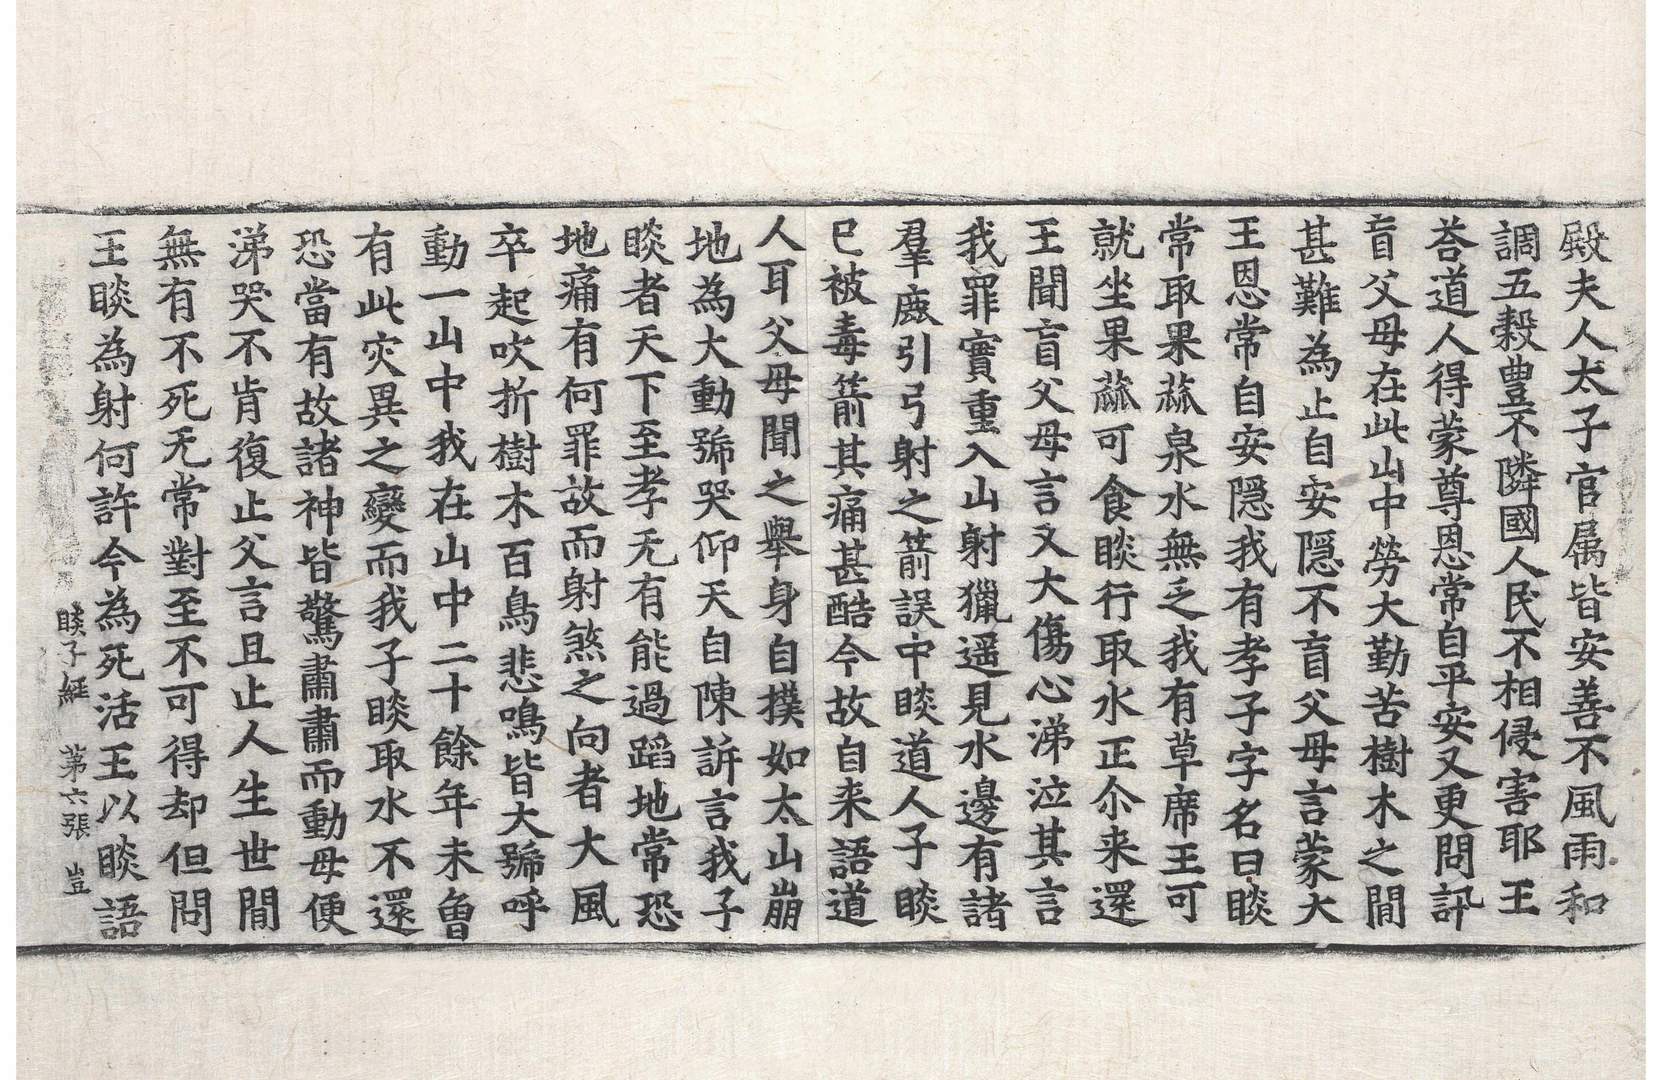 殿夫人太子官属皆安善不風雨和
調五穀豊不隣國人民不相侵害耶王
荅道人得蒙尊恩常自平安又更問訊
盲父母在此山中勞大勤苦樹木之間
甚難為止自安隱不盲父母言蒙大
王恩常自安隱我有孝子字名曰睒
常取果蓏泉水無乏我有草席王可
就坐果蓏可食睒行取水正尒来還
王聞盲父母言又大傷心涕泣其言
我罪實重入山射獵遥見水邊有諸
羣鹿引弓射之箭誤中睒道人子睒
已被毒箭其痛甚酷今故自来語道
人耳父母聞之舉身自撲如太山崩
地為大動號哭仰天自陳訴言我子
睒者天下至孝无有能過蹈地常恐
地痛有何罪故而射煞之向者大風
卒起吹折樹木百鳥悲鳴皆大號呼
動一山中我在山中二十餘年未曾
有此灾異之變而我子睒取水不還
恐當有故諸神皆驚肅肅而動母便
涕哭不肯復止父言且止人生世間
無有不死无常對至不可得却但問
王睒為射何許今為死活王以睒語
睒子経 第六張 豈